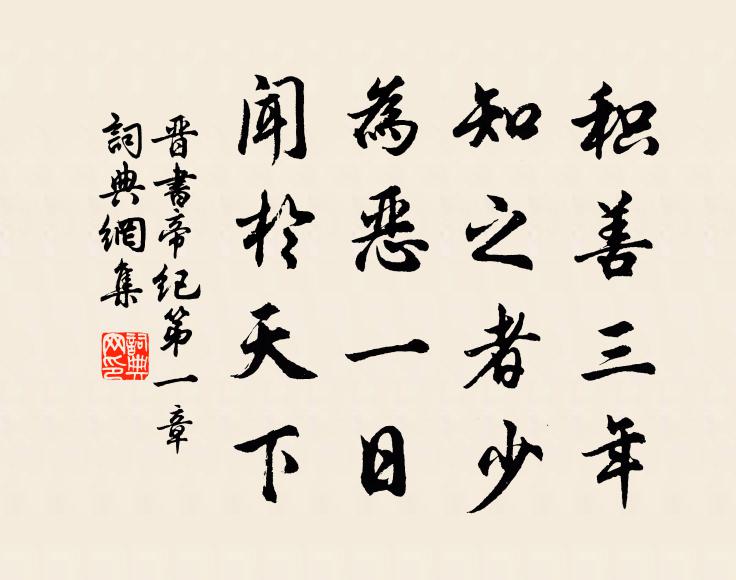 积善三年
知之者少
為惡一日
聞於天下
晋書帝纪第一章
詞典網集
詞典
网印